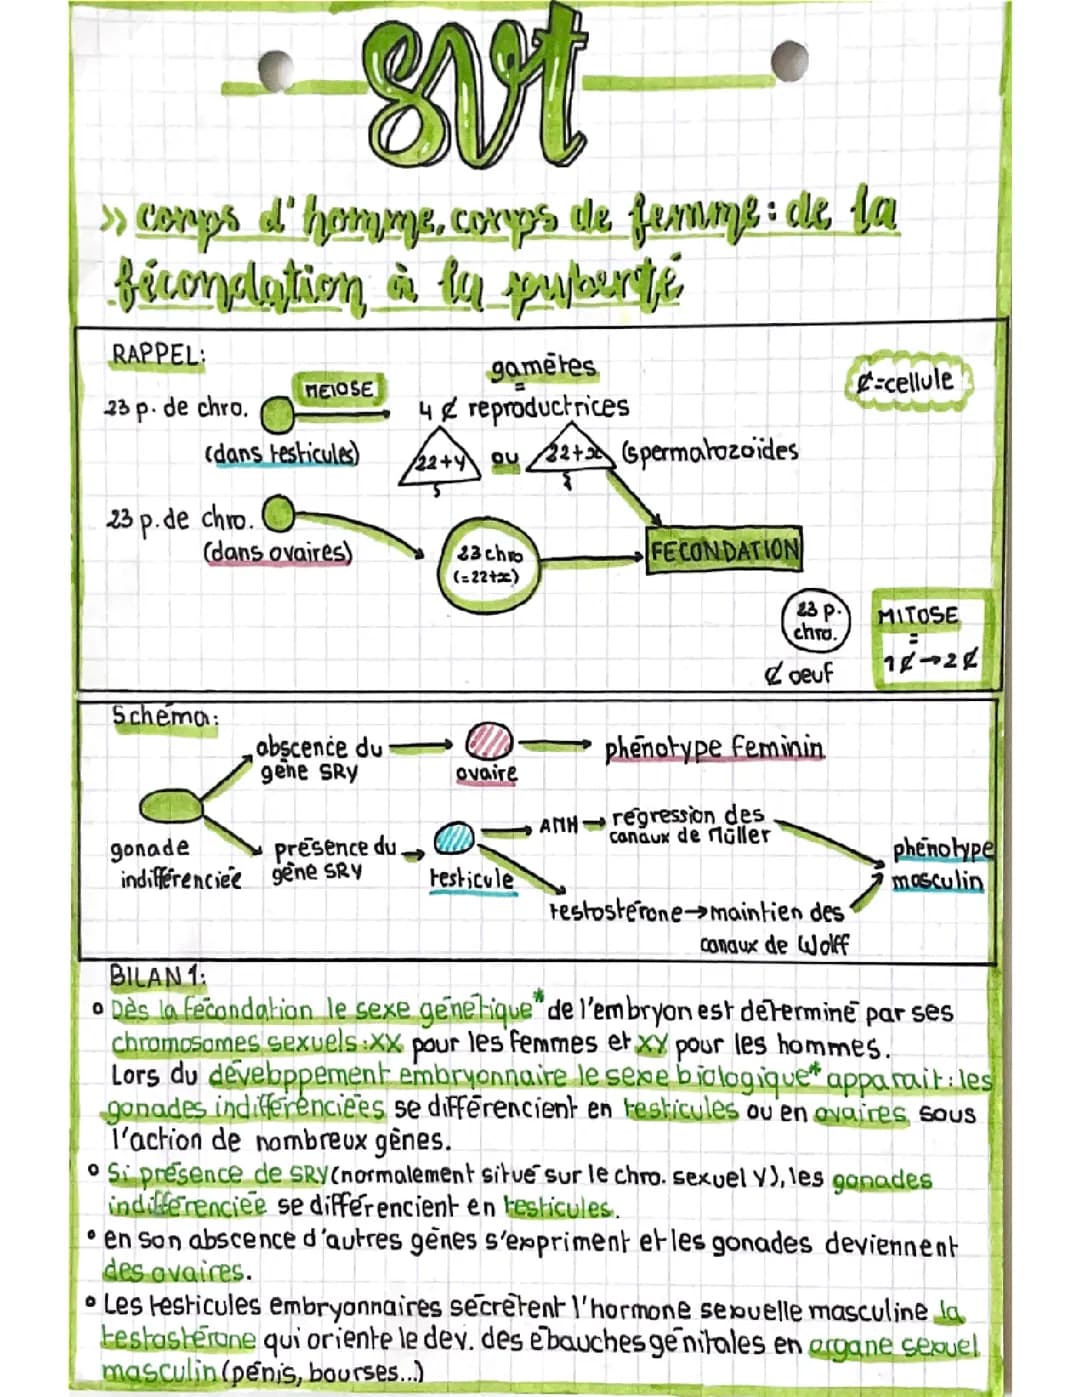 svt
>> corps d'homme, corps de femme : de la
fécondation à la puberté
RAPPEL:
gamètes
=
¢=cellule
MEIOSE
23 p. de chro.
4 ¢ reproductrices
(dans testicules)
22+y ou 22+x (spermatozoïdes
23 p. de chro.
(dans ovaires)
23 chro
(=22+x)
FECONDATION
23 p.
chro.
¢ oeuf
MITOSE
=
1¢→2¢
Schéma:
abscence du
gène SRY
ovaire
phénotype féminin
gonade
indifférenciée
présence du
gène SRY
testicule
AMH → régression des
canaux de Müller
testostérone→maintien des
canaux de Wolff
phénotype
masculin
BILAN 1:
° Dès la fécondation le sexe génétique* de l'embryon est déterminé par ses
chromosomes sexuels :XX pour les femmes et XY pour les hommes.
Lors du développement embryonnaire le sexe biologique* apparait : les
gonades indifférenciées se différencient en testicules ou en ovaires sous
l'action de nombreux gènes.
° Si présence de SRY (normalement situé sur le chro. sexuel Y), les gonades
indifférenciée se différencient en testicules.
° en son abscence d'autres gènes s'expriment et les gonades deviennent
des ovaires.
° Les testicules embryonnaires sécrètent l'hormone sexuelle masculine la
testostérone qui oriente le dev. des ébauches génitales en organe sexuel
masculin (pénis, bourses...)